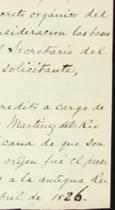 creto orgánico del
nsideracion las bases
l Secretario del
solicitante,
redito a cargo de
Martinez del Rio
cana de que son
origen fué el pres
a la antigua Re
bril de 1826.